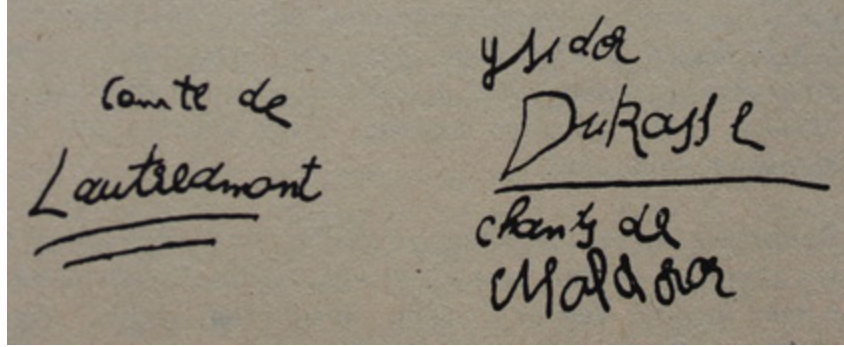 comte de
Lautreamont
ysidor
DuKasse
chants de
Maldoror